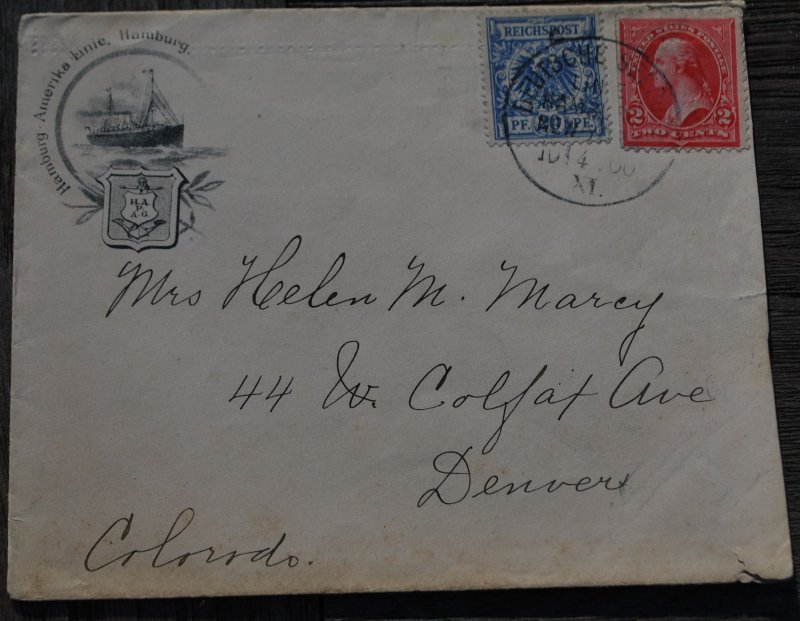 Hamburg-Amerika Linie, Hamburg.
H.A.
P.
A.G.
REICHSPOST
20
PF. PF.
UNITED STATES POSTAGE
2 2
TWO CENTS
DEUTSCHE
XI.
Mrs Helen M. Marcy
44 W. Colfax Ave
Denver
Colorado.